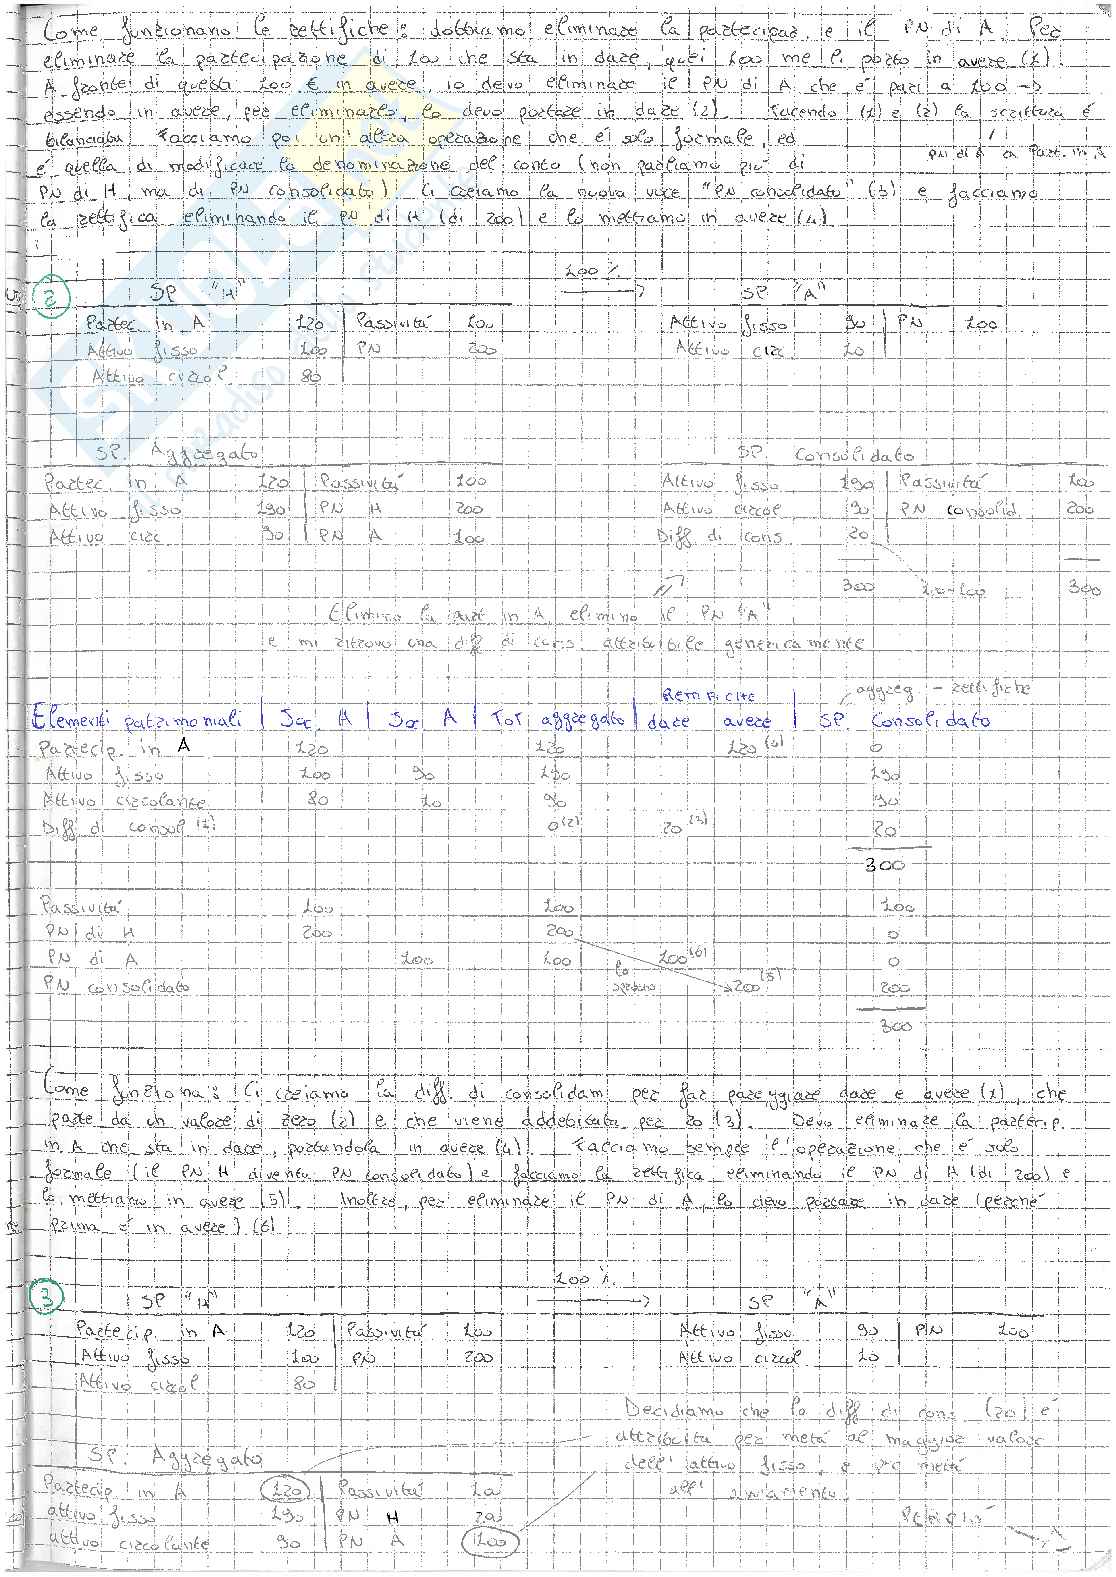 Come funzionano le rettifiche: dobbiamo eliminare la partecipaz. e il PN di A. Per
eliminare la partecipazione di 100 che sta in dare, quei 100 me li porto in avere (1).
A fronte di questi 100 € in avere, io devo eliminare il PN di A che è pari a 100 →
essendo in avere, per eliminarlo, lo devo portare in dare (2). Facendo (1) e (2) la scrittura è
bilanciata. Facciamo poi un'altra operazione che è solo formale, ed
PN di A a Part. in A
è quella di modificare la denominazione del conto (non parliamo più di
PN di H, ma di PN consolidato) Ci creiamo la nuova voce "PN consolidato" (3) e facciamo
la rettifica eliminando il PN di H (di 200) e lo mettiamo in avere (4).
2 SP "H" 100 % → SP "A"
Partec in A 120 | Passività 100 Attivo fisso 90 | PN 100
Attivo fisso 100 | PN 200 Attivo circ 10
Attivo circol. 80
SP. Aggregato SP Consolidato
Partec. in A 120 | Passività 100 Attivo fisso 190 | Passività 100
Attivo fisso 190 | PN H 200 Attivo circol 90 | PN consolid. 200
Attivo circ 90 | PN A 100 Diff di cons. 20
300 120-100 300
Elimino la part in A, elimino il PN "A"
e mi ritrovo una diff di cons. attribuibile genericamente
RETTIFICHE aggreg - rettifiche
Elementi patrimoniali | Soc H | Soc A | Tot aggregato | dare avere | SP. Consolidato
Partecip. in A 120 120 120 (4) 0
Attivo fisso 100 90 190 190
Attivo circolante 80 10 90 90
Diff di consol (1) 0 (2) 20 (3) 20
300
Passività 100 100 100
PN di H 200 200 0
PN di A 100 100 100 (6) 0
PN consolidato lo 200 (5) 200
300
Come funziona: Ci creiamo la diff. di consolidam. per far pareggiare dare e avere (1), che
parte da un valore di zero (2) e che viene addebitata per 20 (3). Devo eliminare la partecip.
in A che sta in dare, portandola in avere (4). Facciamo sempre l'operazione che è solo
formale (il PN "H" diventa PN consolidato) e facciamo la rettifica eliminando il PN di H (di 200) e
lo mettiamo in avere (5). Inoltre, per eliminare il PN di A, lo devo portare in dare (perché
prima è in avere) (6)
3 SP "H" 100 % → SP "A"
Partecip. in A 120 | Passività 100 Attivo fisso 90 | PN 100
Attivo fisso 100 | PN 200 Attivo circol 10
Attivo circol 80
Decidiamo che la diff di cons. (20) è
SP. Aggregato attribuita per metà al maggior valore
dell'attivo fisso, e per metà
Partecip. in A 120 | Passività 100 all'avviamento.
attivo fisso 190 | PN H 200
attivo circolante 90 | PN A 100